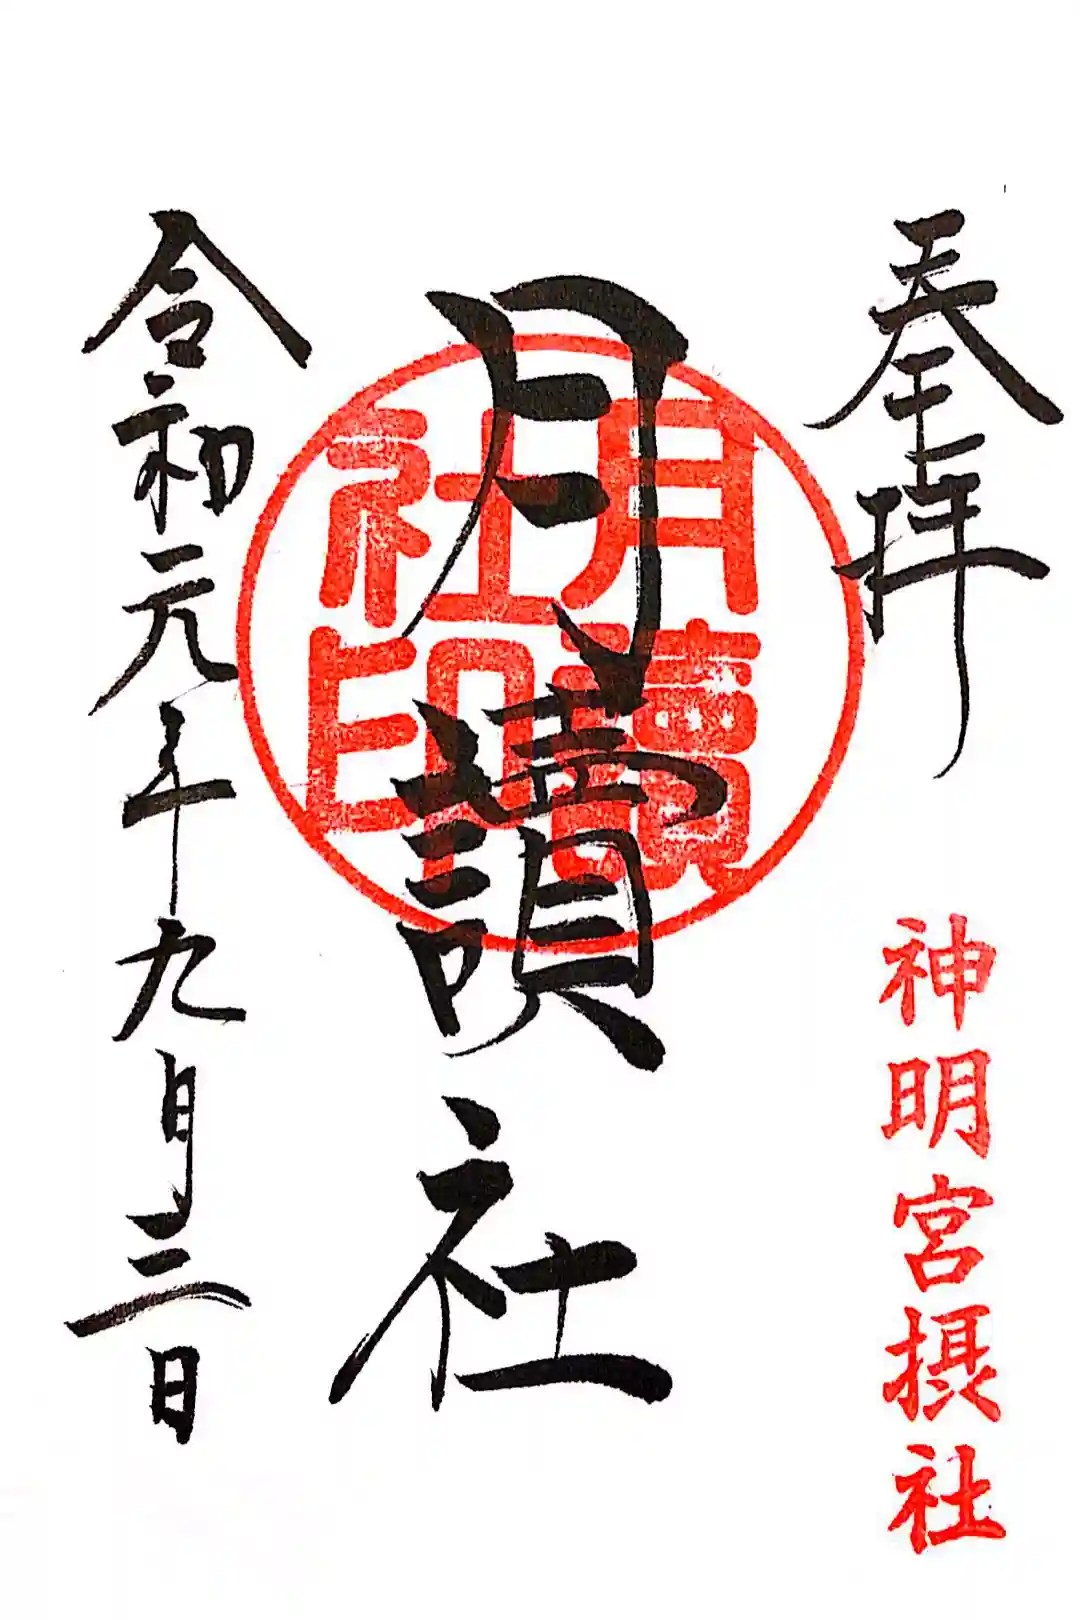 奉拝
神明宮摂社
月讀社
月讀
社印
令和元年九月三日